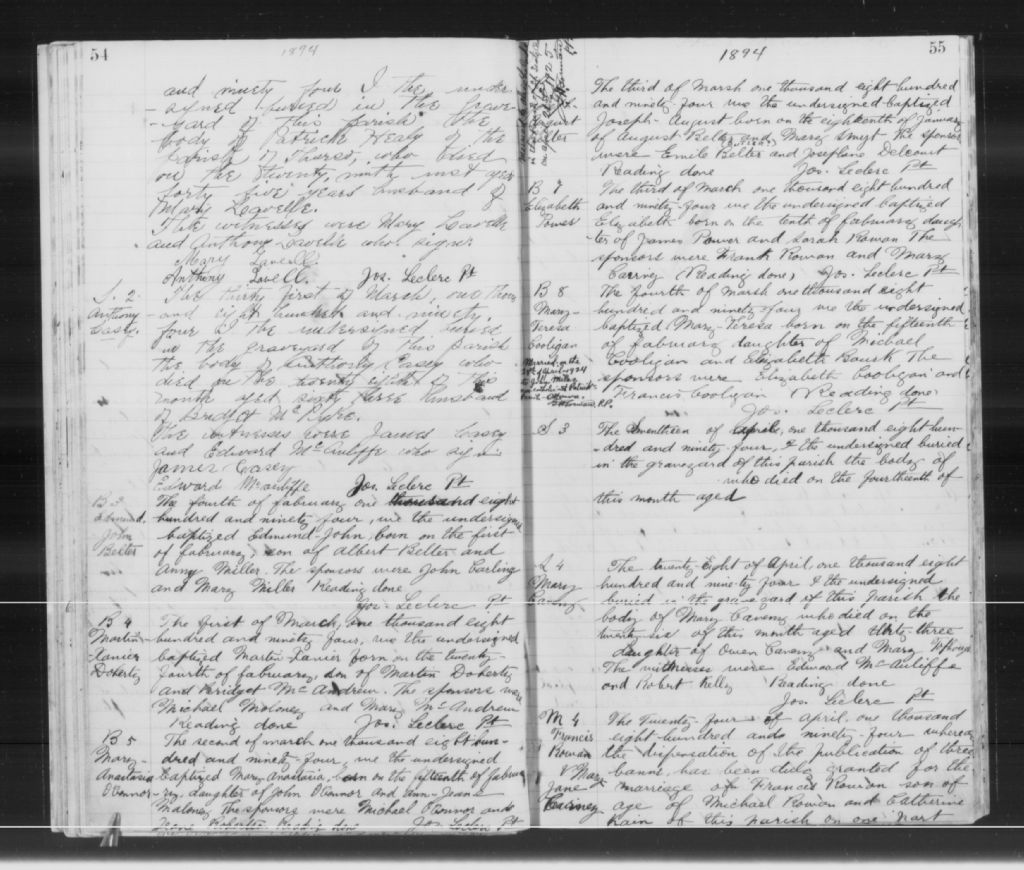 54
1894
and ninety four I the under-
signed buried in the grave-
-yard of this parish the
body of Patrick Healy of the
parish of Thurso, who died
on the twenty ninth inst aged
forty five years husband of
Mary Lavelle.
The witnesses were Mary Lavelle
and Anthony Lavelle who signer
Mary Lavell
Anthony Lavell. Jos. Leclerc Pt
S. 2.
Anthony
Casey.
The thirty first of March, one thou-
-and eight hundred and ninety,
four I the undersigned buried
in the graveyard of this parish
the body of Anthony Casey who
died on the twenty eight of this
month aged sixty three husband
of Bridget
The witnesses were James Casey
and Edward McAuliffe who sign
James Casey
Edward McAuliffe Jos. Leclerc Pt
B 3
Edmund.
John
Belter
The fourth of fabruary one thousand eight
hundred and ninety four, we the undersigne
baptized Edmund-John, born on the first
of fabruary, son of Albert Belter and
Anny Miller. The sponsors were John Carling
and Mary Miller Reading done
Jos. Leclerc Pt
B 4
Martin-
Xavier
Doherty
The first of March, one thousand eight
hundred and ninety four, we the undersigned
baptized Martin Xavier born on the twenty-
fourth of fabruary, son of Martin Doherty
and Bridget McAndrew. The sponsors were
Michael Moloney and Mary McAndrew
Reading done Jos. Leclerc Pt
B 5
Mary-
Anastasia
O'Connor
The second of march one thousand eight hun-
dred and ninety-four, we the undersigned
baptized Mary Anastasia, born on the fifteenth of fabrua
ry, daughter of John O'Connor and Ann-Joana
Malony The sponsors were Michael O'Connor and
Jos. Leclerc Pt
55
1894
August
Belter
The third of Marsh one thousand eight hundred
and ninety-four we the undersigned baptized
Joseph-August born on the eighteenth of January
of August Belter and Mary Smyt The sponsors
were Emile Belter and Josephine Delcourt
Reading done Jos. Leclerc Pt
B 7
Elizabeth
Power
The third of March one thousand eight hundred
and ninety-four we the undersigned baptized
Elizabeth born on the tenth of fabruary daugh-
-ter of James Power and Sarah Rowan The
sponsors were Frank Rowan and Mary
Carring (Reading done) Jos. Leclerc Pt
B 8
Mary-
Teresa
Cooligan
Married on the
of April 1924
The fourth of Marsh one thousand eight
hundred and ninety-four we the undersigned
baptized Mary-Teresa born on the fifteenth
of fabruary daughter of Michael
Cooligan and Elizabeth The
sponsors were Elizabeth Cooligan and
Francis Cooligan (Reading done
Jos. Leclerc Pt
S 3
The Seventteen of april, one thousand eight hun-
-dred and ninety-four, I the undersigned buried
in the graveyard of this parish the body of
who died on the fourtheenth of
this month aged
S 4
Mary
Caveny
The twenty-eight of April one thousand eight
hundred and ninety four I the undersigned
buried in the graveyard of this parish the
body of Mary Caveny who died on the
twenty six of this month aged thirty-three
daughter of Owen Caveny and Mary
The witnesses were Edward McAuliffe
and Robert Kelly Reading done
Jos. Leclerc Pt
M 4
Francis
Rowan
& Mary
Jane
The twenty-four of april. one thousand
eight-hundred and ninety-four whereas
the dispensation of the publication of three
banns, has been duly granted for the
marriage of Francis Rowan son of
age of Michael Rowan and Catherine
Kain of this parish on one part